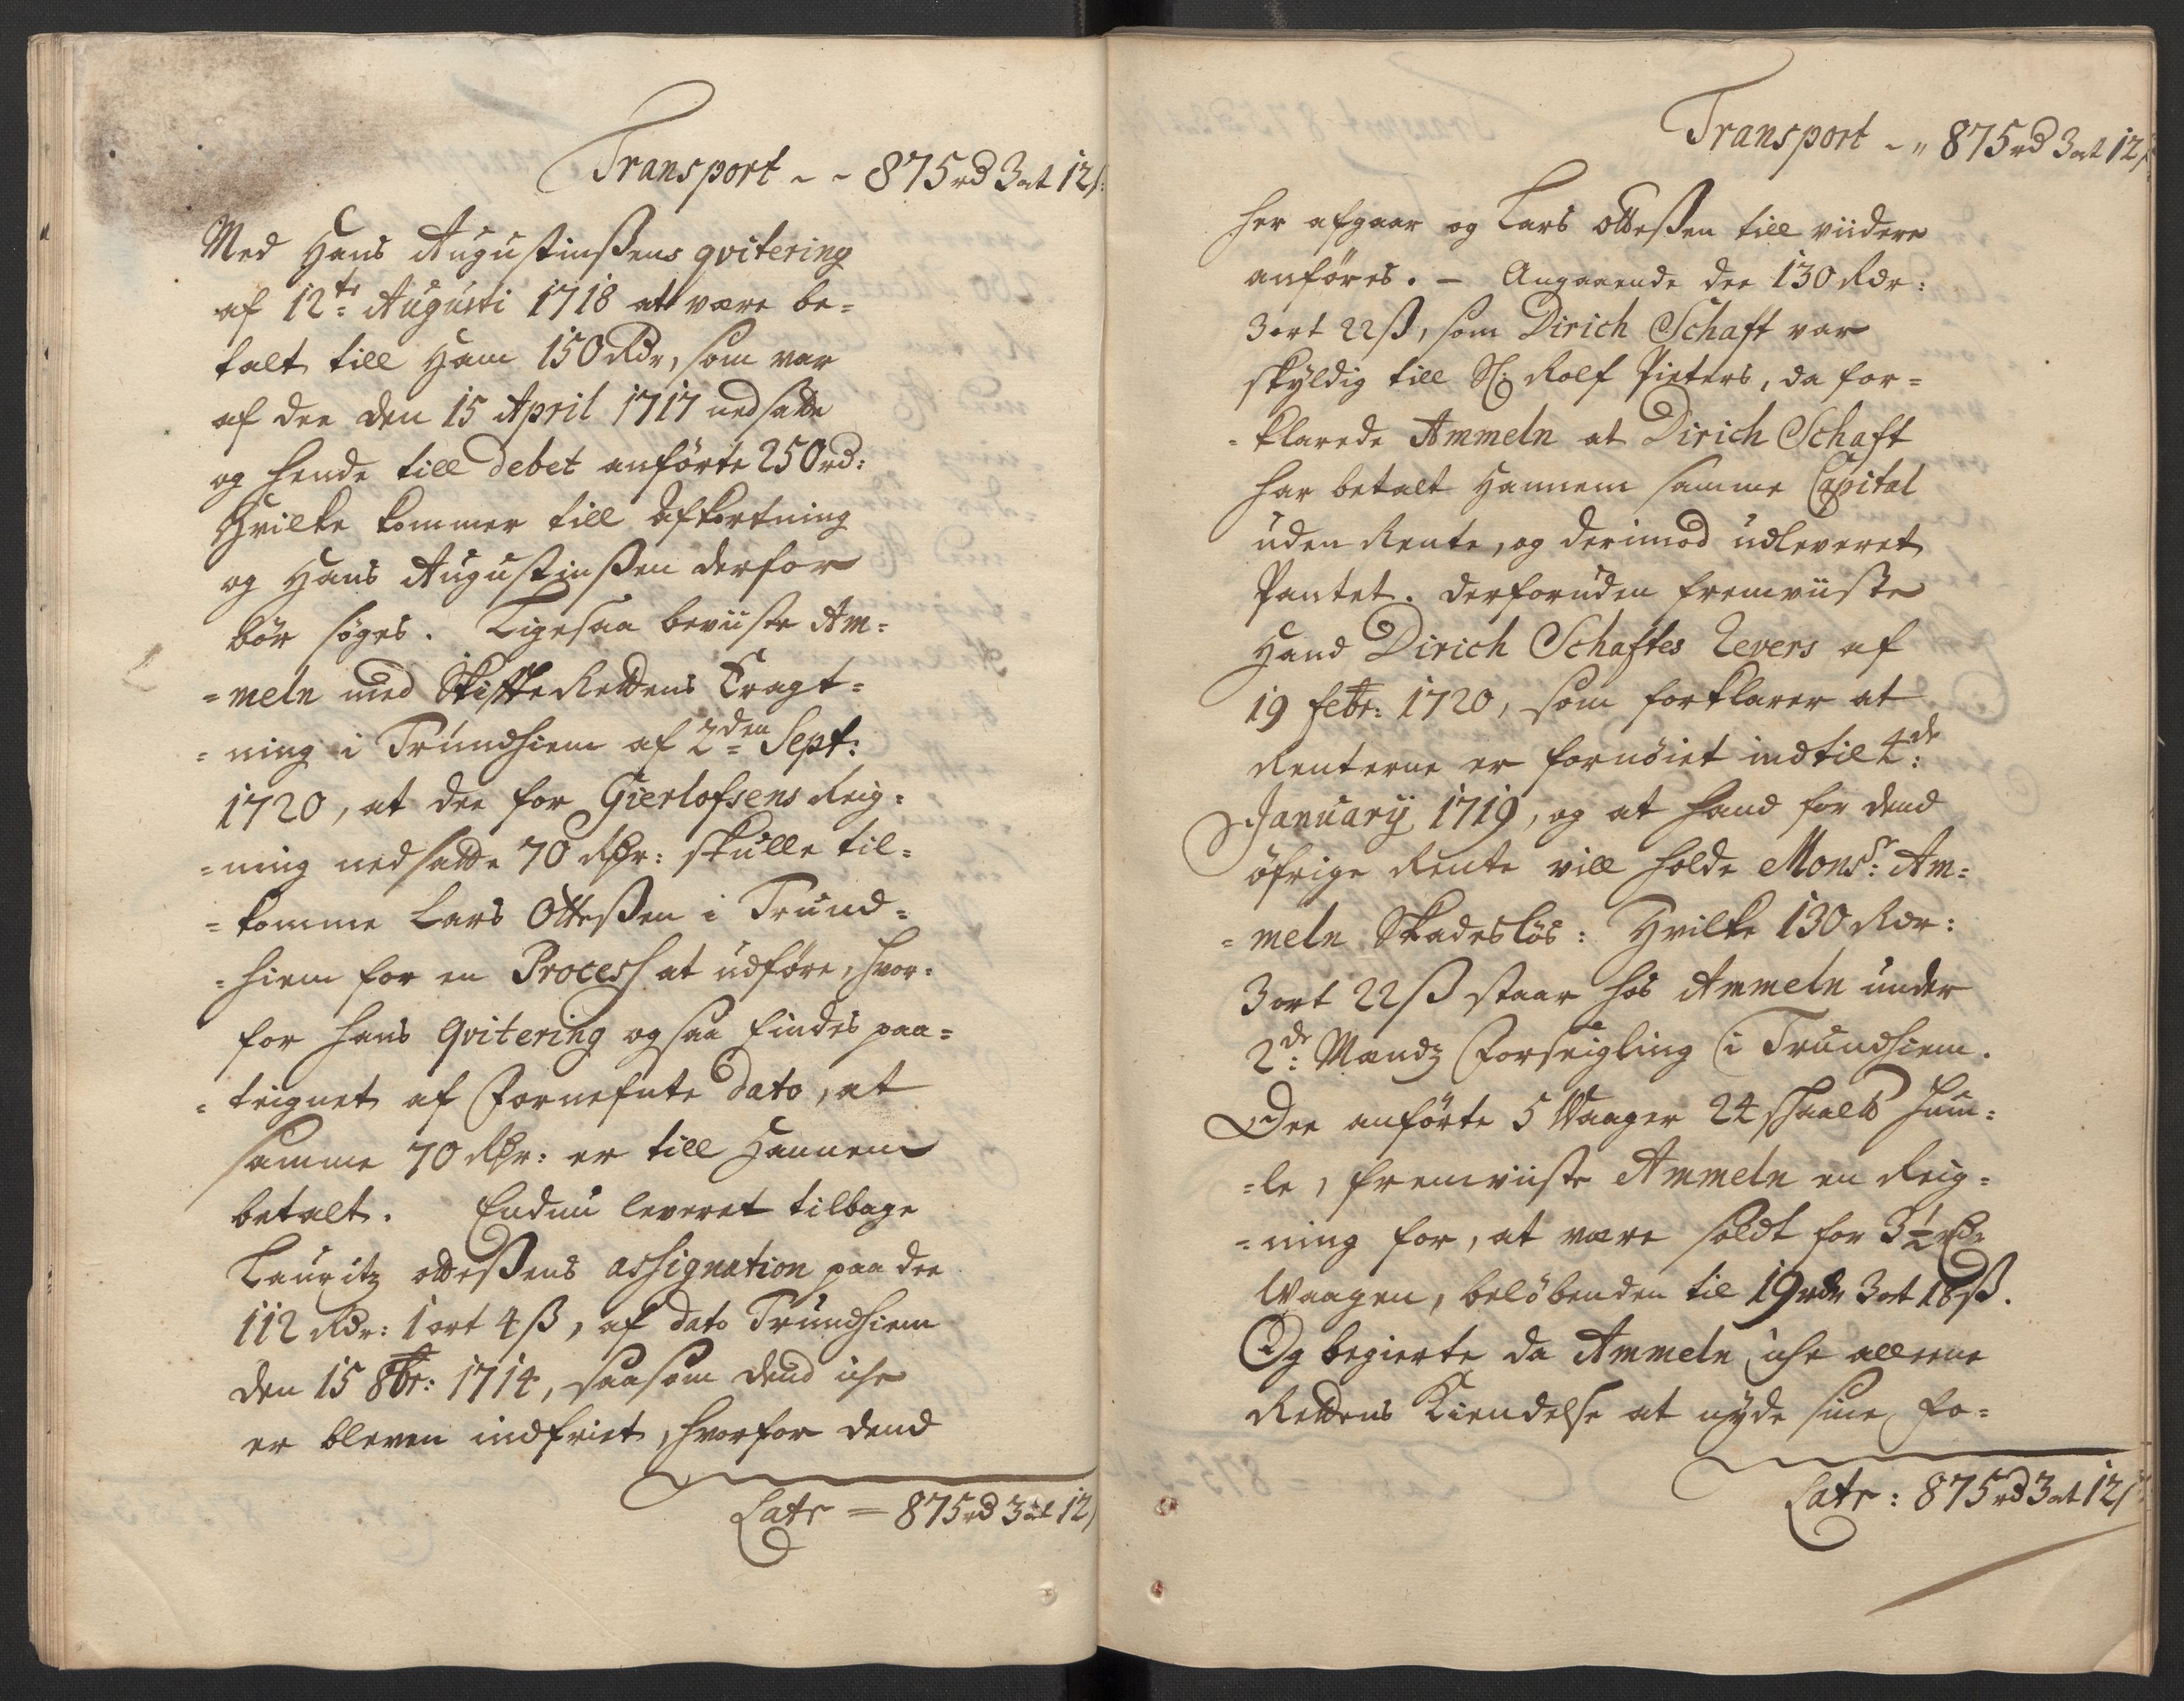 Transport ~ ~ 875 rd 3 ort 12 ß:
Med Hans Augustinßens qvitering
af 12te: Augusti 1718 at være be=
talt till Ham 150 Rdr, som var
af dee den 15 April 1717 nedsatte
og hende till debet anførte 250 rd:
Hvilke kommer till Afkortning
og Hans Augustinßen derfor
bør søges. Ligesaa beviiste Am=
=meln med Skiffte Rettens Tragt=
=ning i Trundhiem af 2den Sept:
1720, at dee for Gierlofsens Reig=
=ning nedsatte 70 Rdr: skulle til=
=komme Lars Otteßen i Trund=
=hiem for en Process at udføre, hvor=
for hans Qvitering og saa findes paa=
=teignet af fornefnte dato, at
samme 70 Rdr: er till Hannem
betalt. Endnu leveret tilbage
Lauritz otteßens assignation paa dee
112 Rdr: 1 ort 4 ß, af dato Trundhiem
den 15 8br: 1714, saasom dend iche
er bleven indfriet, hvorfor dend
Latr = 875 rd 3 ort 12 ß
Transport ~ " 875 rd 3 ort 12 ß
her afgaar og Lars Otteßen till viidere
anføres. – Angaaende dee 130 Rdr:
3 ort 22 ß, som Dirich Schaft var
skyldig till Sl: Rolf Pieters, da for=
=klarede Ammeln at Dirich Schaft
har betalt Hannem samme Capital
uden Rente, og derimod udleveret
Pantet. derforuden fremviiste
Hand Dirich Schaftes Revers af
19 febr: 1720, som forklarer at
Renterne er fornøiet indtil 4de:
Januarij 1719, og at hand for dend
øfrige Rente vill holde Monsr: Am=
=meln Skadesløs: Hvilke 130 Rdr:
3 ort 22 ß staar hos Ammeln under
2de: Mandz Forseigling i Trundhiem.
Dee anførte 5 Waager 24 skaalb hum=
=le, fremviiste Ammeln en Reig=
=ning for, at være soldt for 3 1/2 rdr
Waagen, beløbenden til 19 rdr 3 ort 18 ß.
Og begierte da Ammeln iche alleene
Rettens Kiendelse at nyde sine for=
Latr: 875 rd 3 ort 12 ß